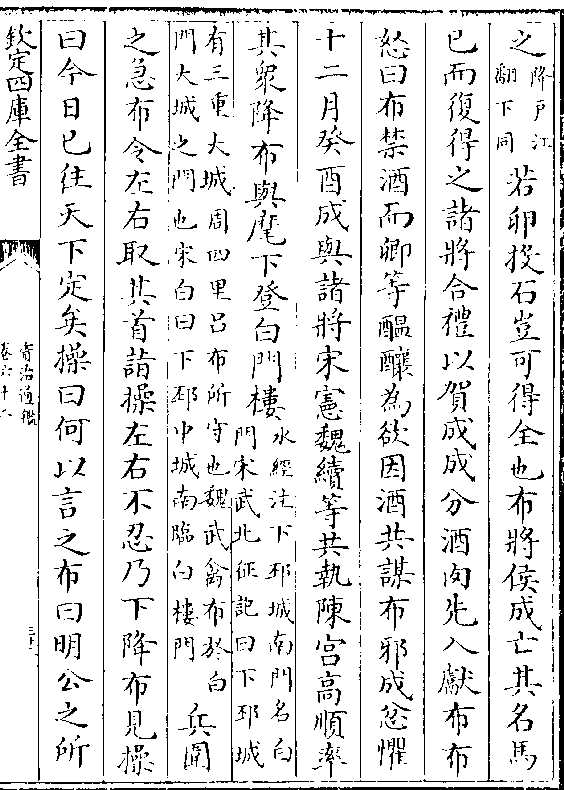 之降戶江翻下同若卵投石豈可得全也布將侯成亡其名馬
已而復得之諸將合禮以賀成成分酒肉先入獻布布
怒曰布禁酒而卿等醖釀為欲因酒共謀布邪成忿懼
十二月癸酉成與諸將宋憲魏續等共執陳宮高順率
其衆降布與麾下登白門樓水經注下邳城南門名白門宋武北征記曰下邳城
有三重大城周四里呂布所守也魏武禽布於白門大城之門也宋白曰下邳中城南臨白樓門兵圍
之急布令左右取其首詣操左右不忍乃下降布見操
曰今日已往天下定矣操曰何以言之布曰明公之所
欽定四庫全書
資治通鑑
卷六十二